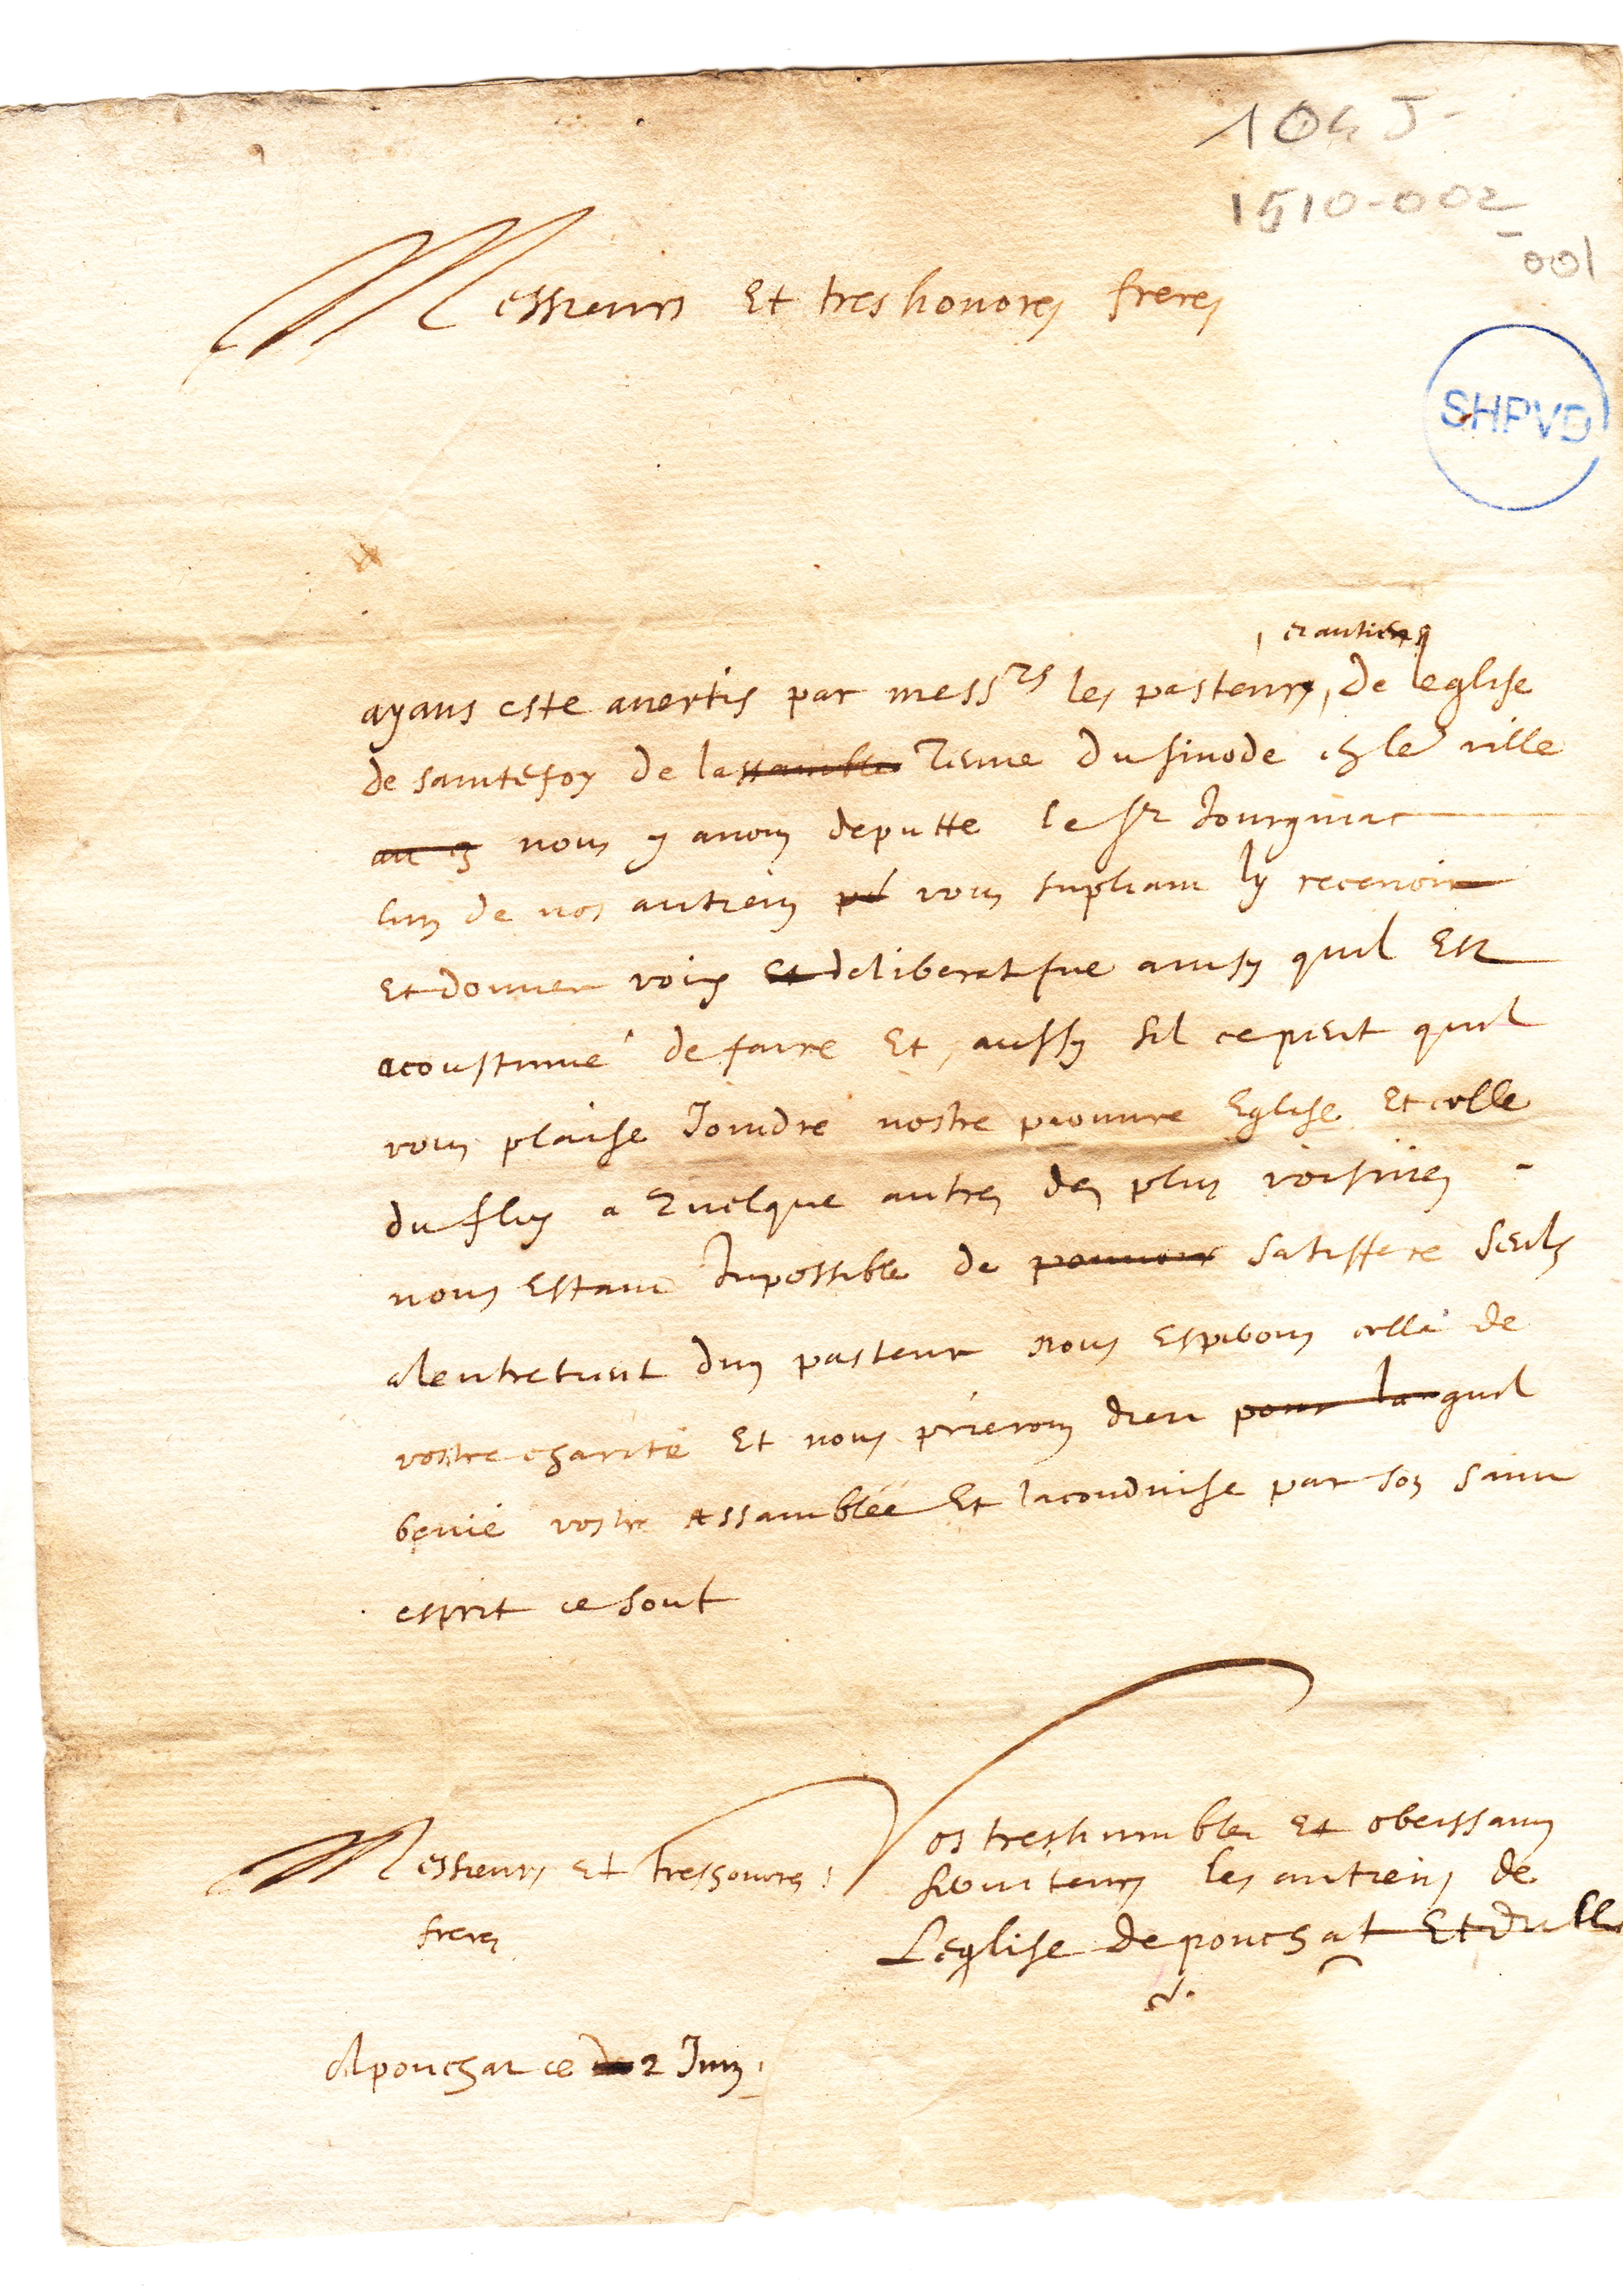 104 J-
1510-002
-001
Messieurs Et tres honores freres
SHPVD
et antiens
ayans este avertis par mess^rs les pasteurs, de leglise
de saintefoy de lassamblee Tenue du sinode ch le ville
au 3 nous y avons deputte le sr Jourgniac
lun de nos antiens vous supliant ly recevoir
Et donner voix et deliberatifve ainsy quil Est
acoustumé de faire Et aussy sil ce peut quil
vous plaise Joindre nostre pauvre Eglise Et celle
du fleix a Quelque autres des plus voisines -
nous Estant Inpossible de pouvoir satisffere seuls
a lentretient dun pasteur nous Esperons cella de
vostre charité Et nous prierons dieu pour la quil
benie vostre Assamblée Et la conduise par son saint
esprit ce sont
Vos tres humbles et obeissans
Messieurs Et tres honores serviteurs les antiens de
freres Leglise de ponchat Et du fle
A ponchat ce 2 Juin